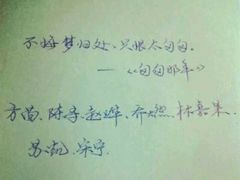 不悔梦归处，只恨太匆匆。
——《匆匆那年》
方茴、陈寻、赵烨、乔燃、林嘉茉、
苏凯、宋宁